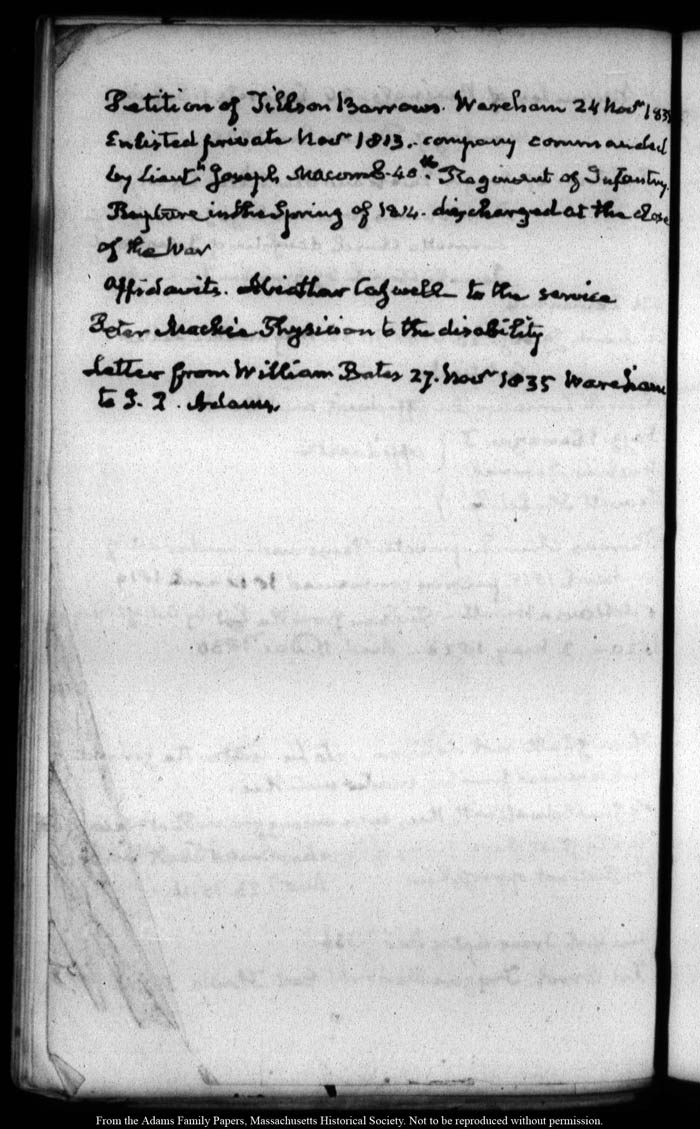 Petition of Tillson Barrows. Wareham 24 Novr 183
Enlisted private Novr 1813. company commanded
by Lieutt Joseph Macomb. 40th Regiment of Infantry.
Rupture in the Spring of 1814. discharged at the close
of the War
Affidavits. to the service
Peter Mackie Physician to the disability
Letter from William Bates 27. Novr 1835 Wareham
to J. Q. Adams.
From the Adams Family Papers, Massachusetts Historical Society. Not to be reproduced without permission.